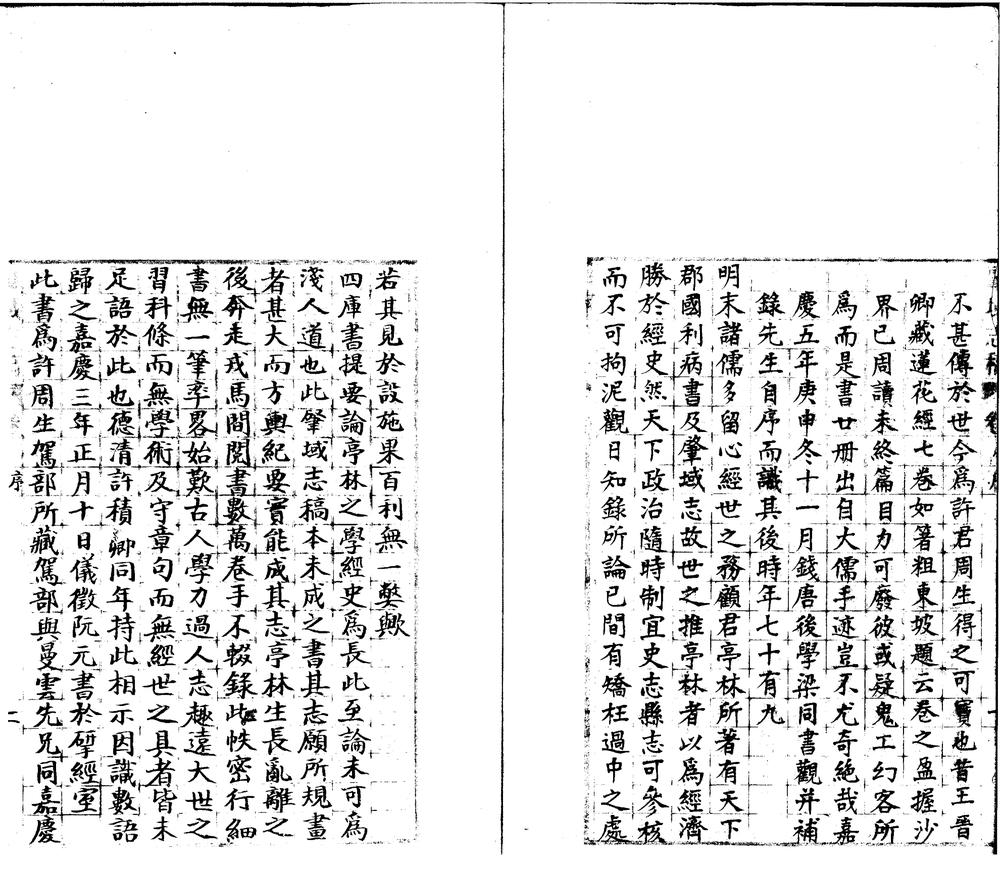 不甚傳於世今爲許君周生得之可寶也昔王晉
卿藏蓮花經七卷如箸粗東坡題云卷之盈握沙
界已周讀未終篇目力可廢彼或疑鬼工幻客所
爲而是書廿册出自大儒手迹豈不尤奇絕哉嘉
慶五年庚申冬十一月錢唐後學梁同書觀并補
錄先生自序而識其後時年七十有九
明末諸儒多留心經世之務顧君亭林所著有天下
郡國利病書及肇域志故世之推亭林者以爲經濟
勝於經史然天下政治隨時制宜史志縣志可參核
而不可拘泥觀日知錄所論已間有矯枉過中之處
若其見於設施果百利無一獘歟
四庫書提要論亭林之學經史爲長此至論未可爲
淺人道也此肇域志稿本未成之書其志願所規畫
者甚大而方輿紀要實能成其志亭林生長亂離之
後奔走戎馬間閱書數萬卷手不輟錄此帙密行細
書無一筆率畧始歎古人學力過人志趣遠大世之
習科條而無學術及守章句而無經世之具者皆未
足語於此也德清許積卿同年持此相示因識數語
歸之嘉慶三年正月十日儀徵阮元書於揅經室
此書爲許周生駕部所藏駕部與曼雲先兄同嘉慶
序
二